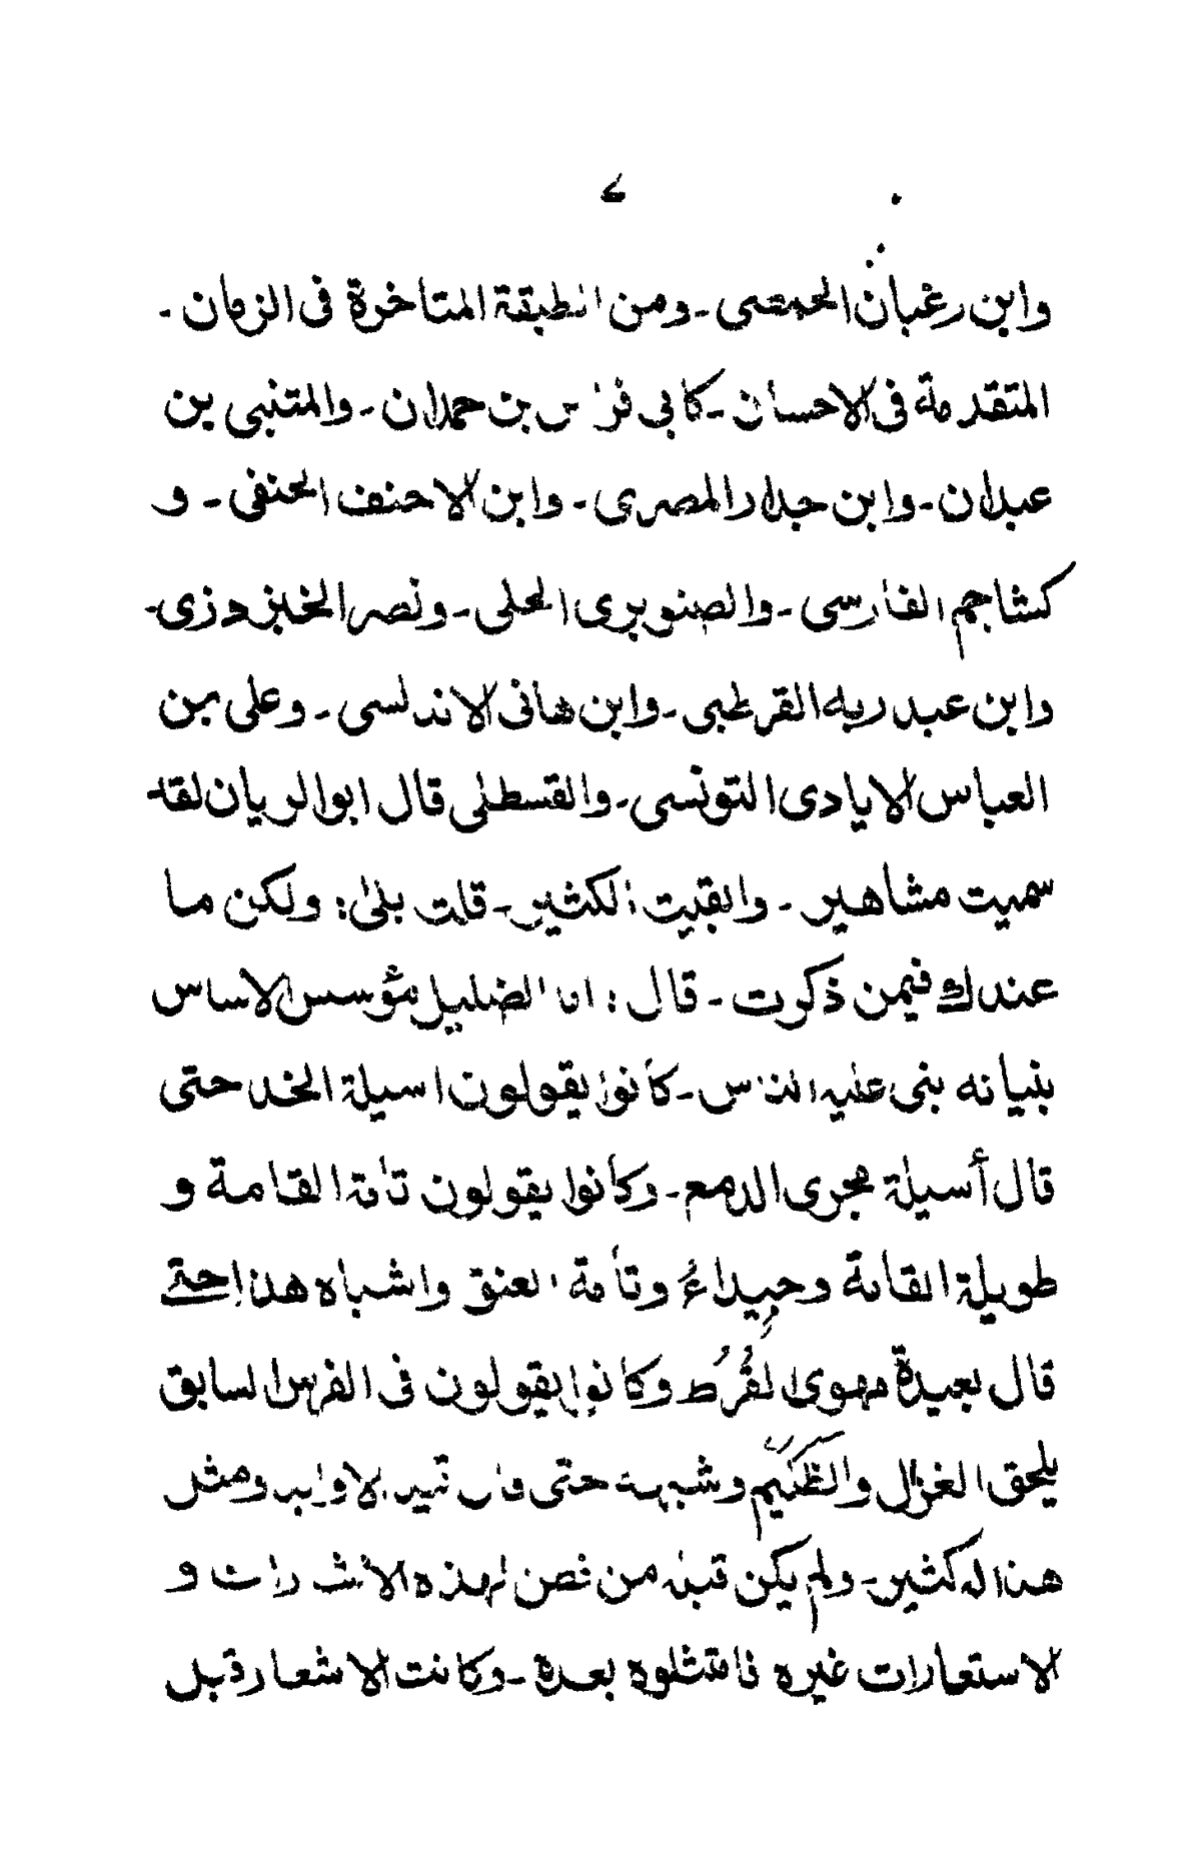 وابن رغبان الحمصى ـ ومن الطبقة المتاخرة فى الزمان ـ
المتقدمة فى الاحسان ـ كابى فراس بن حمدان ـ والمتنبى بن
عبدان ـ وابن جدار المصرى ـ وابن الاحنف الحنفى ـ و
كشاجم الفارسى ـ والصنوبرى الحلى ـ ونصر الخبز دزى ـ
وابن عبد ربه القرطبى ـ وابن هانى الاندلسى ـ وعلى بن
العباس الايادى التونسى ـ والقسطلى قال ابو الريان لقد
سميت مشاهير ـ وابقيت الكثير ـ قلت بلىٰ: ولكن ما
عندك فيمن ذكرت ـ قال: اما الضليل مؤسس الاساس
بنيانه بنى عليه الناس ـ كانوا يقولون اسيلة الخد حتى
قال أسيلة مجرى الدمع ـ وكانوا يقولون تامة القامة و
طويلة القامة وجيداءُ وتامة العنق واشباه هذا حتى
قال بعيدة مهوى القُرُط وكانوا يقولون فى الفرس السابق
يلحق الغزال والظليم وشبهه حتى قال قيد الاوابد ومثل
هذا له كثير ـ ولم يكن قبله من فطن لهذه الاشارات و
الاستعارات غيره فامتثلوه بعده ـ وكانت الاشعار قبل